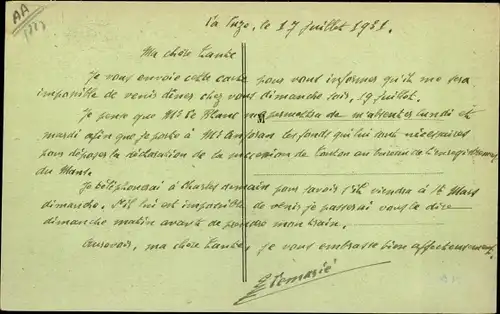 AA
le 17 juillet 1931.
Ma chère Tante
Je vous envoie cette carte pour vous informer qu'il me sera
impossible de venir dîner chez vous dimanche soir, 19 juillet.
Je pense que Mr Le Blanc me permettra de m'absenter lundi et
mardi afin que je porte à Mr les fonds qui lui sont nécessaires
pour déposer la déclaration de la succession de Tonton au bureau de l'enregistrement
du Mans.
Je téléphonerai à Charles demain pour savoir s'il viendra à St Mars
dimanche. S'il lui est impossible de venir je passerai vous le dire
dimanche matin avant de prendre mon train.
Au revoir, ma chère Tante, je vous embrasse bien affectueusement.